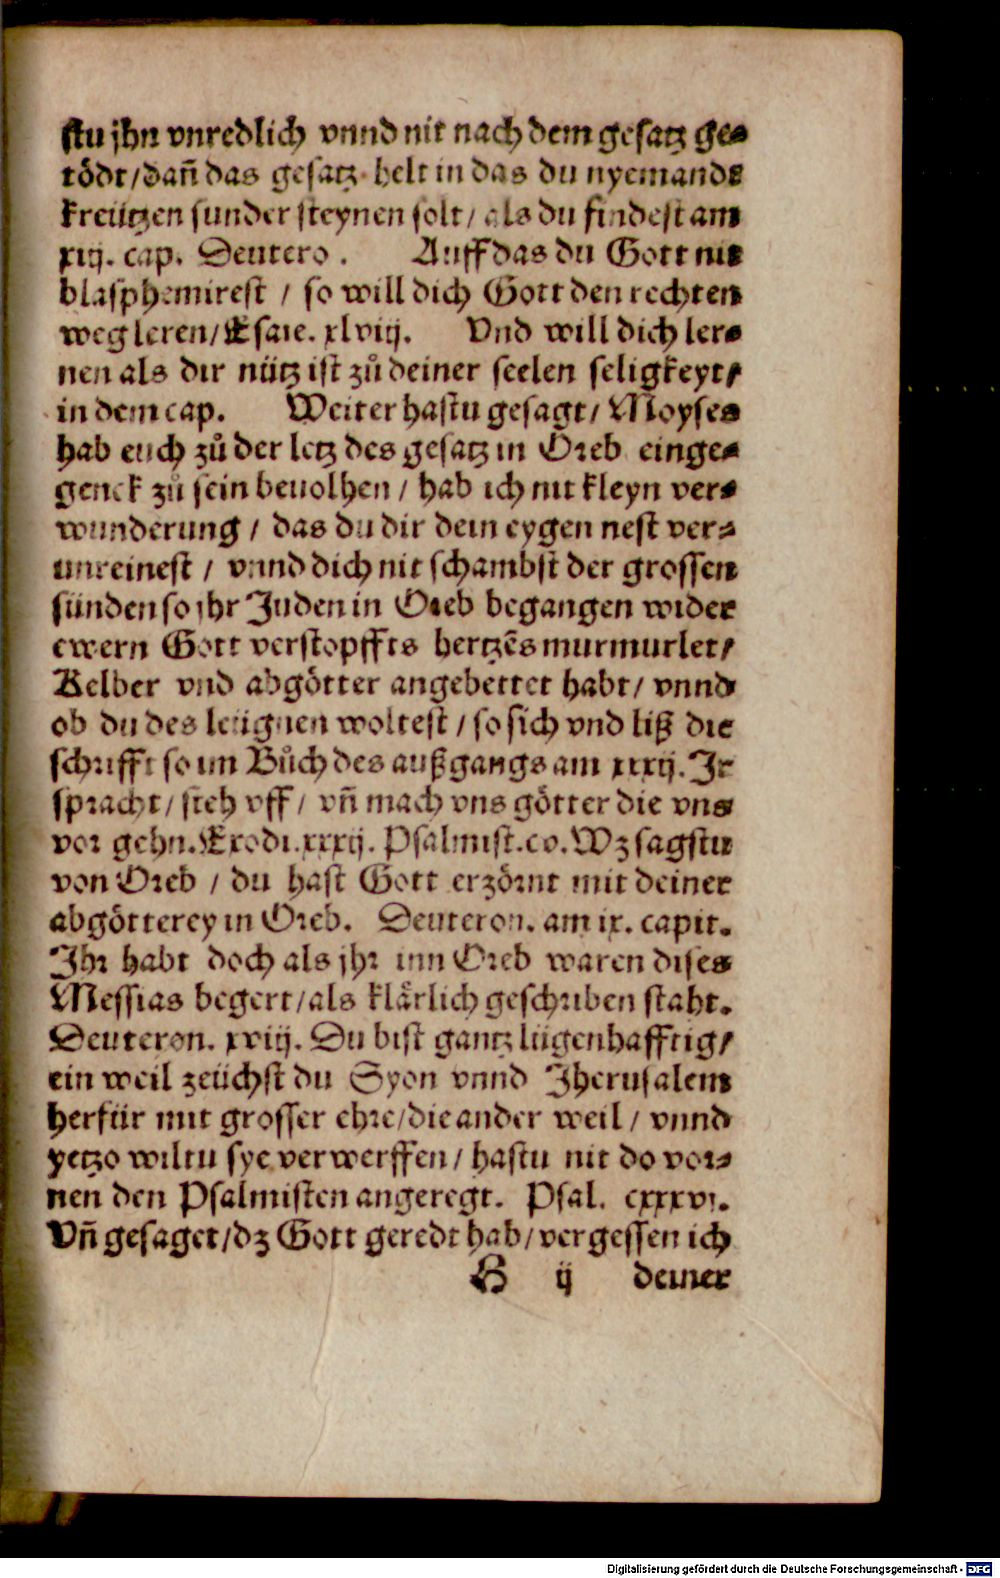 stu jhn vnredlich vnnd nit nach dem gesatz ge⸗
tödt/dañ das gesatz helt in das du nyemands
kreützen sunder steynen solt/ als du findest am
xiij. cap. Deutero. Auff das du Gott nit
blasphemirest / so will dich Gott den rechten
weg leren/Esaie. xlviij. Vnd will dich ler⸗
nen als dir nütz ist zů deiner seelen seligkeyt/
in dem cap. Weiter hastu gesagt/ Moyses
hab euch zů der letz des gesatz in Oreb einge⸗
genck zů sein beuolhen / hab ich nit kleyn ver⸗
wunderung / das du dir dein eygen nest ver⸗
unreinest / vnnd dich nit schambst der grossen
sünden so jhr Juden in Oreb begangen wider
ewern Gott verstopffts hertzẽs murmurlet/
Kelber vnd abgötter angebettet habt/ vnnd
ob du des leügnen woltest / so sich vnd liß die
schrifft so im Bůch des außgangs am xxxij. Ir
spracht/ steh vff/ vñ mach vns götter die vns
vor gehn. Exodi. xxxij. Psalmist. cv. Wz sagstu
von Oreb / du hast Gott erzörnt mit deiner
abgötterey in Oreb. Deuteron. am ix. capit.
Ihr habt doch als jhr inn Oreb waren dises
Messias begert/als klärlich geschriben staht.
Deuteron. xviij. Du bist gantz lügenhafftig/
ein weil zeüchst du Syon vnnd Jherusalem
herfür mit grosser ehre/die ander weil / vnnd
yetzo wiltu sye verwerffen/ hastu nit do vor⸗
nen den Psalmisten angeregt. Psal. cxxxvi.
Vñ gesaget/dz Gott geredt hab/vergessen ich
H ij deiner
Digitalisierung gefördert durch die Deutsche Forschungsgemeinschaft - DFG